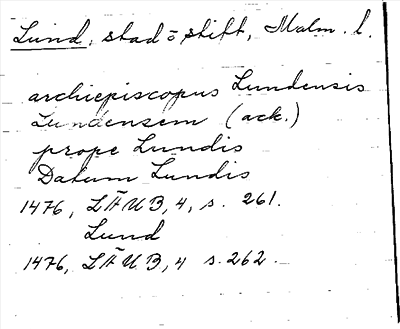 Lund, stad o stift, Malm. l.
archiepiscopus Lundensis
Lundensem (ack.)
prope Lundis
Datum Lundis
1476, LÄUB, 4, s. 261.
Lund
1476, LÄUB, 4 s. 262.